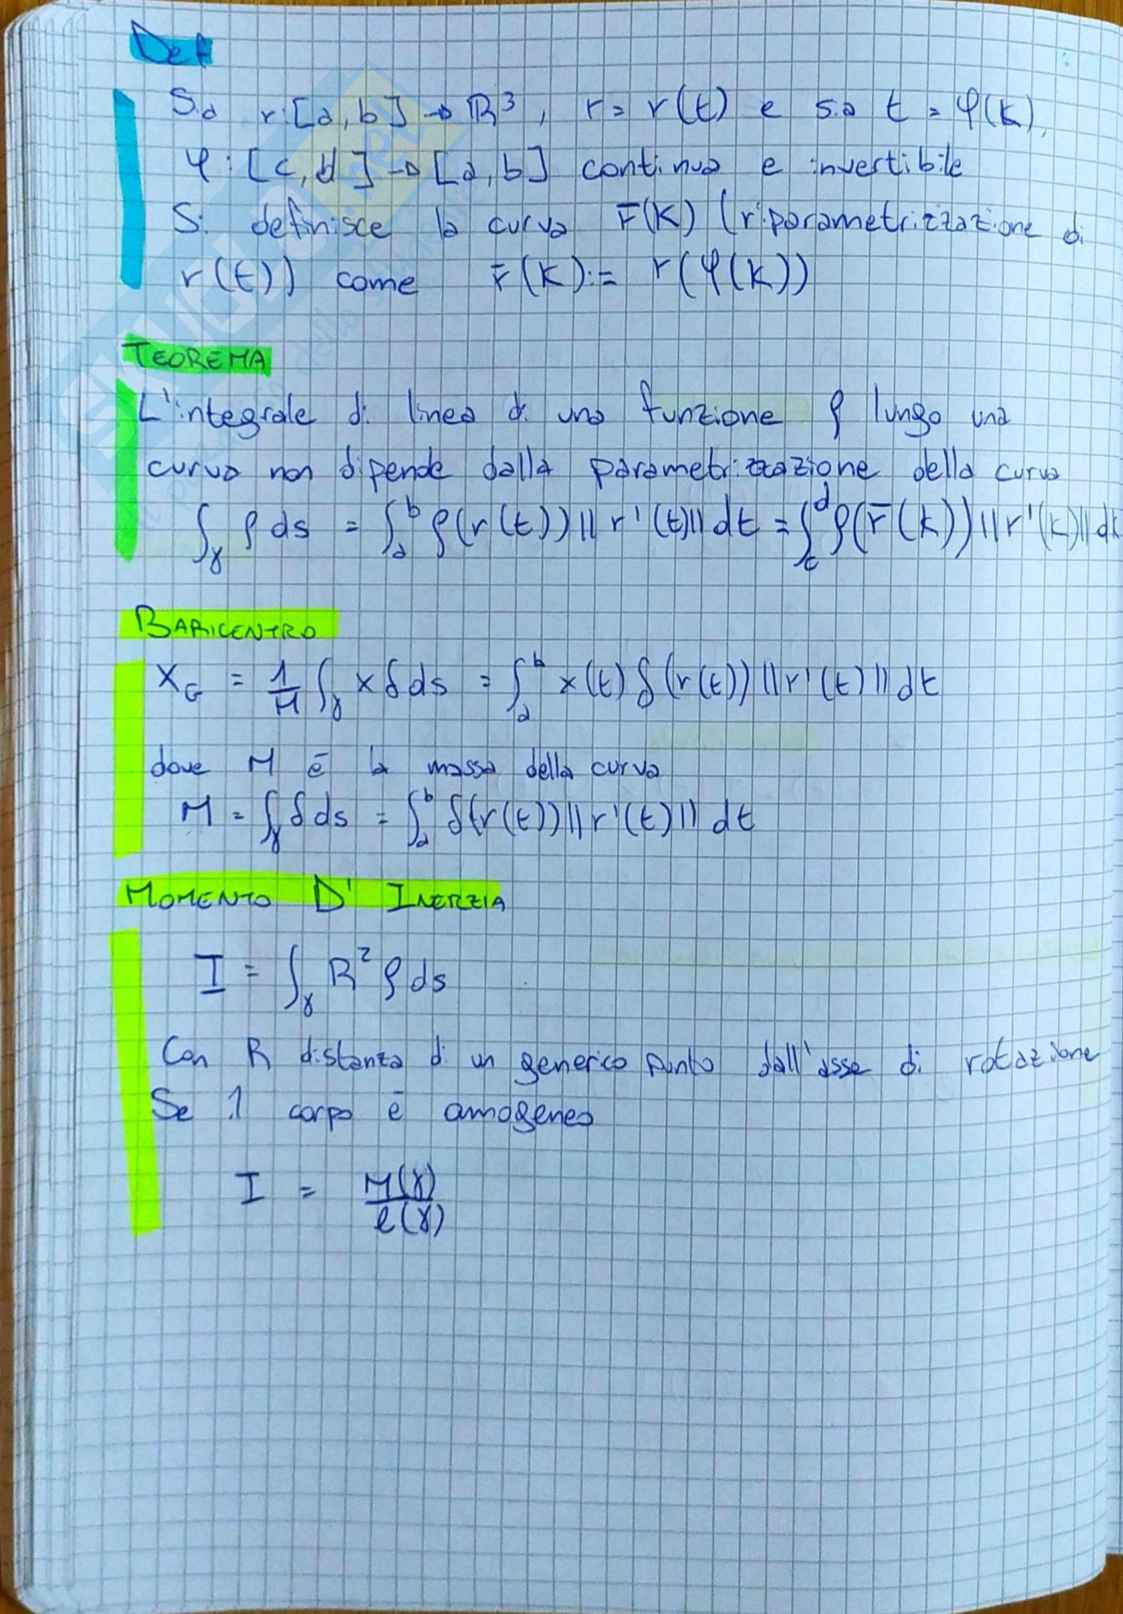 Def
Sia r:[a,b]→ℝ³, r=r(t) e sia t=φ(k),
φ:[c,d]→[a,b] continua e invertibile
Si definisce la curva r̄(k) (riparametrizzazione di
r(t)) come r̄(k):= r(φ(k))
TEOREMA
L'integrale di linea di una funzione ρ lungo una
curva non dipende dalla parametrizzazione della curva
∫_γ ρ ds = ∫_a^b ρ(r(t))||r'(t)|| dt = ∫_c^d ρ(r̄(k))||r'(k)|| dk
BARICENTRO
X_G = 1/M ∫_γ x δ ds = ∫_a^b x(t) δ(r(t)) ||r'(t)|| dt
dove M è la massa della curva
M = ∫_γ δ ds = ∫_a^b δ(r(t))||r'(t)|| dt
MOMENTO D'INERZIA
I = ∫_γ R² ρ ds
Con R distanza di un generico punto dall'asse di rotazione
Se 1 corpo è omogeneo
I = M(γ)/ℓ(γ)